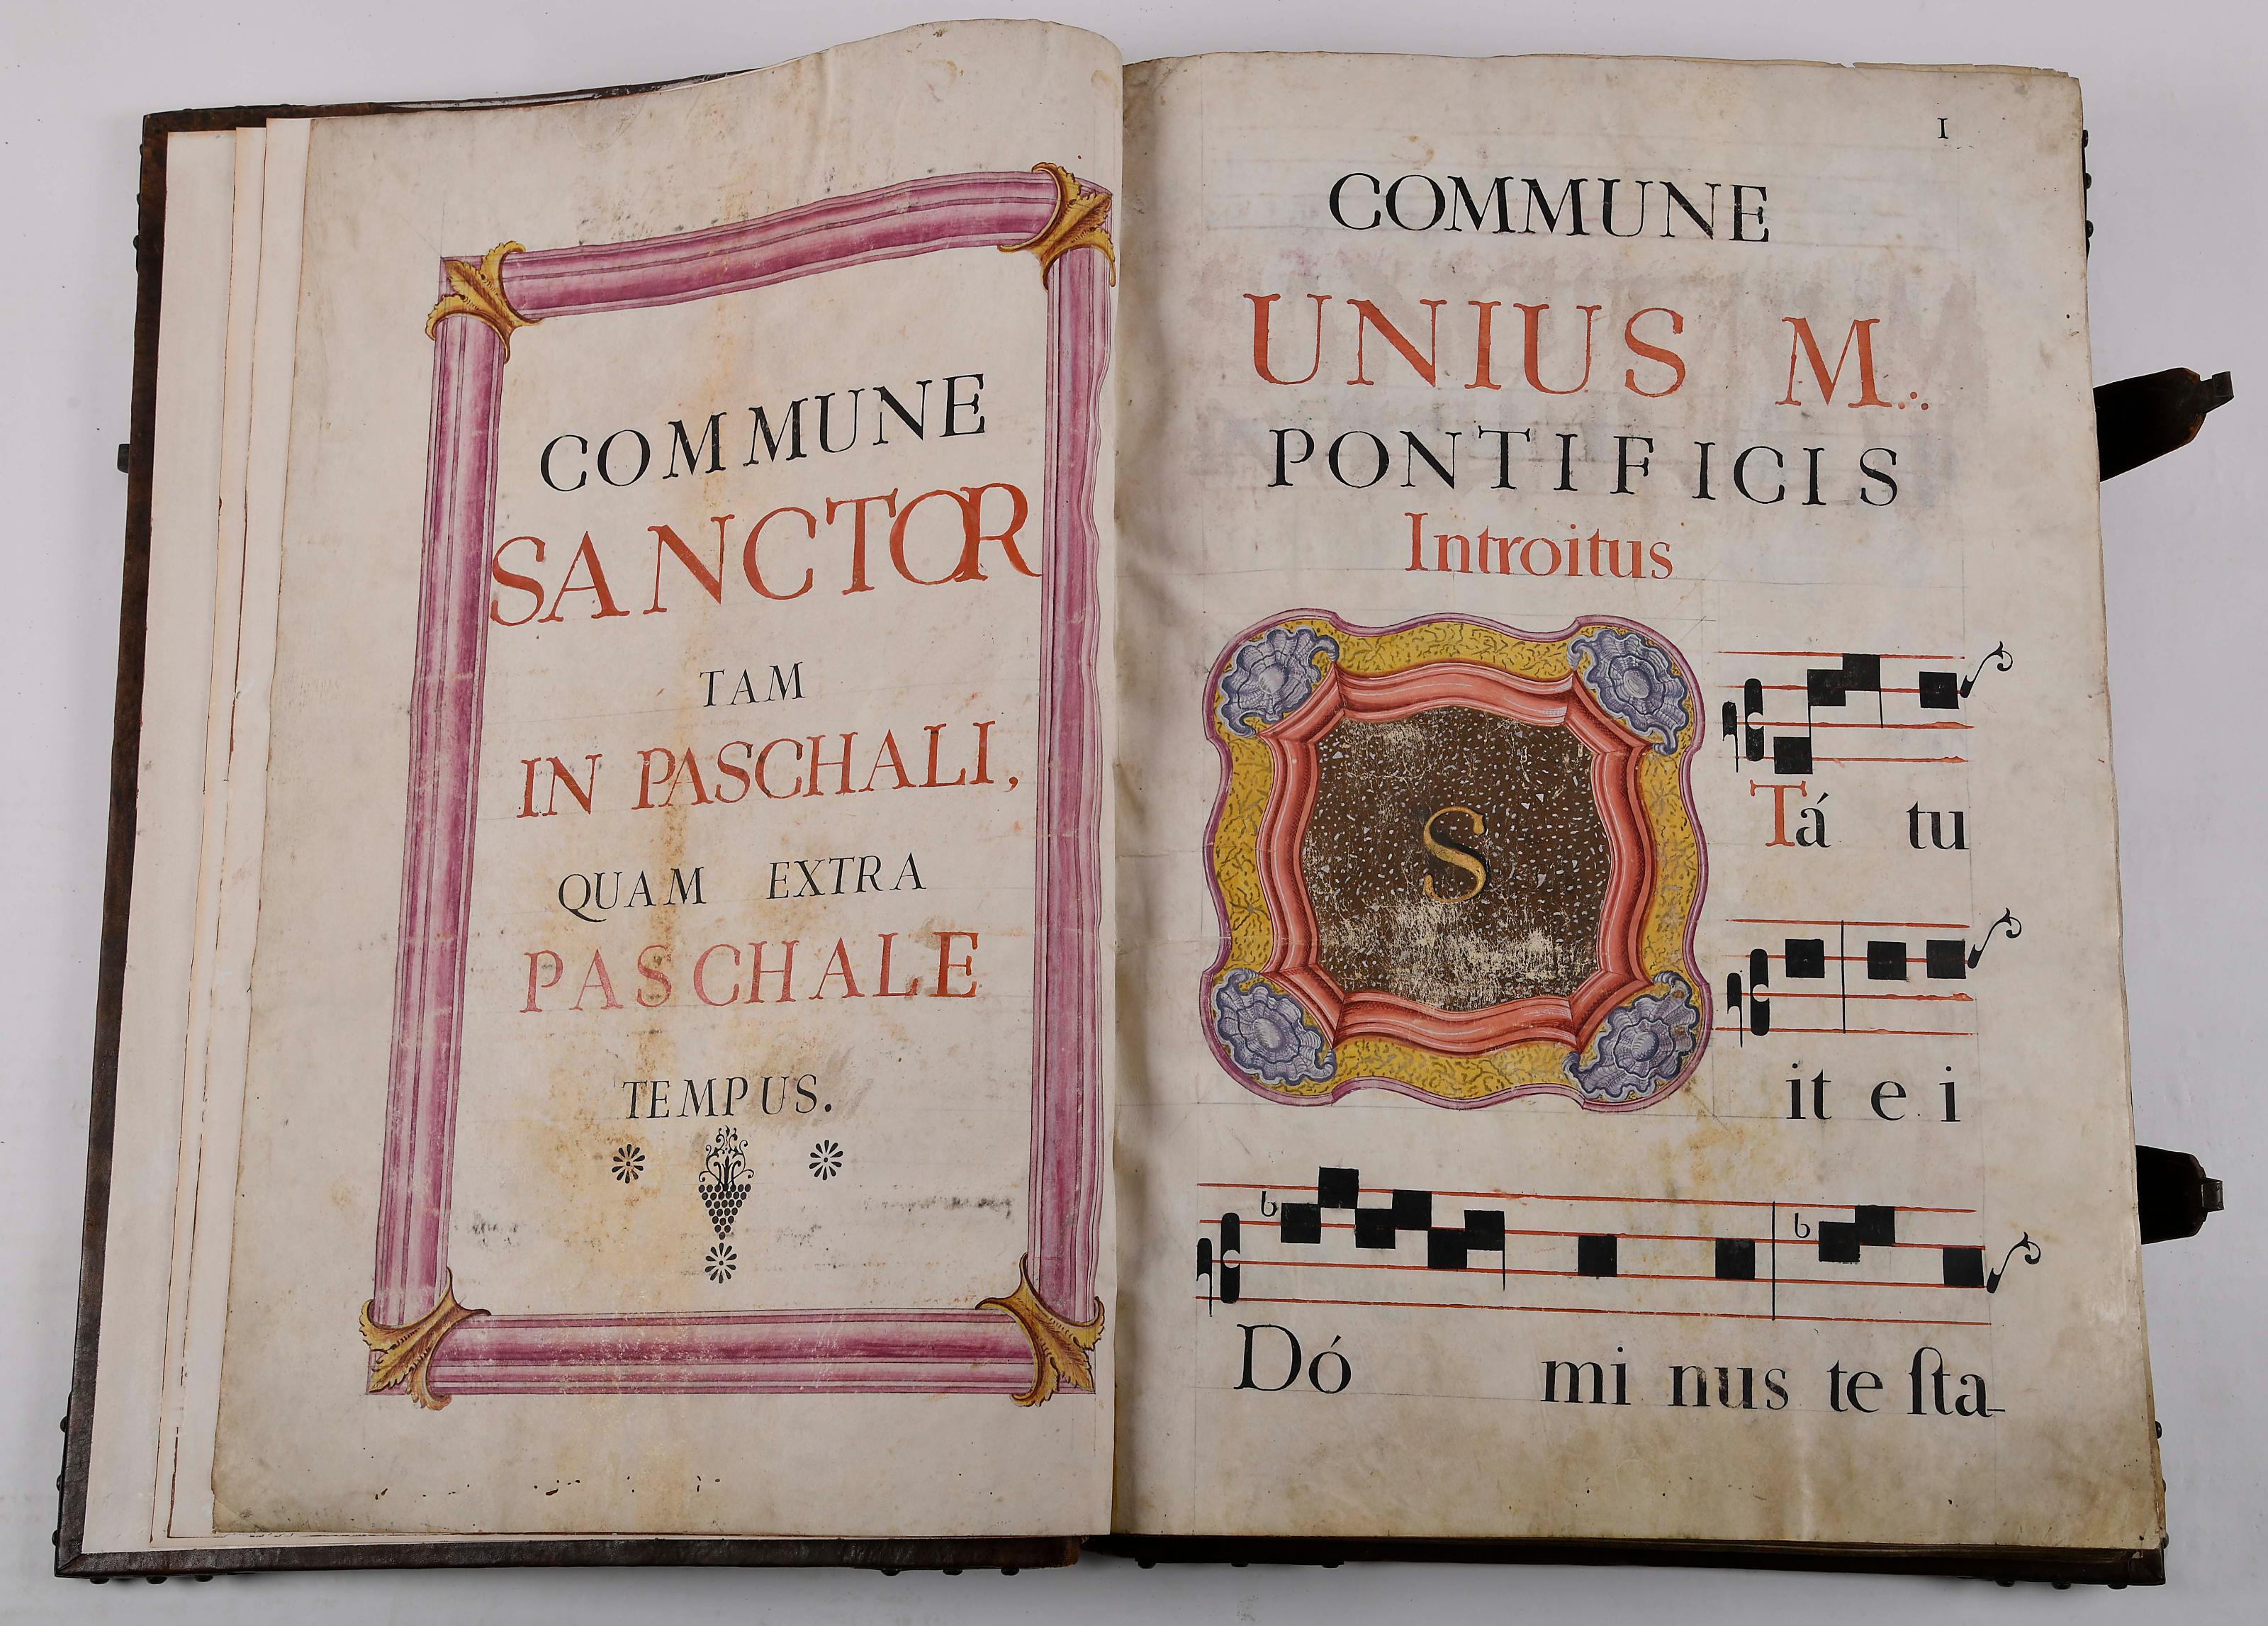 COMMUNE
SANCTOR
TAM
IN PASCHALI,
QUAM EXTRA
PASCHALE
TEMPUS.
I
COMMUNE
UNIUS M.
PONTIFICIS
Introitus
S
Tá tu
it e i
Dó mi nus te ſta-